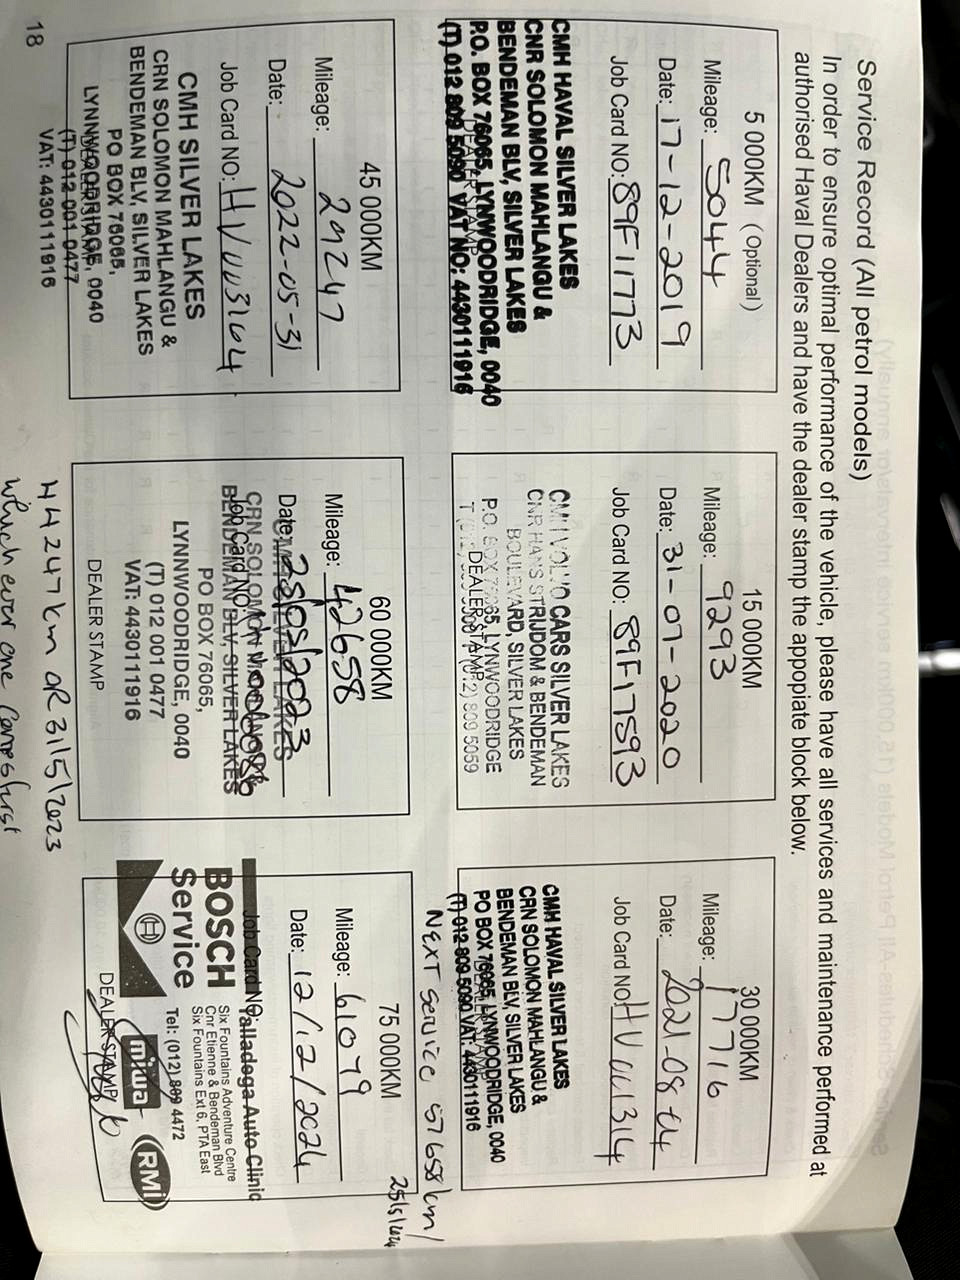 Service Record (All petrol models)
In order to ensure optimal performance of the vehicle, please have all services and maintenance performed at
authorised Haval Dealers and have the dealer stamp the appopiate block below.
5 000KM (Optional)
Mileage: 5044
Date: 17-12-2019
Job Card NO: 89F11773
CMH HAVAL SILVER LAKES
CNR SOLOMON MAHLANGU &
BENDEMAN BLV, SILVER LAKES
P.O. BOX 76065, LYNWOODRIDGE, 0040
(T) 012 809 5090 VAT NO: 4430111916
DEALER STAMP
15 000KM
Mileage: 9293
Date: 31-07-2020
Job Card NO: 89F17593
CMH VOLVO CARS SILVER LAKES
CNR HANS STRIJDOM & BENDEMAN
BOULEVARD, SILVER LAKES
P.O. BOX 76065, LYNWOODRIDGE
DEALER STAMP
809 5059
30 000KM
Mileage: 17716
Date: 2021-08-
Job Card NO:
CMH HAVAL SILVER LAKES
CRN SOLOMON MAHLANGU &
BENDEMAN BLV, SILVER LAKES
PO BOX 76065, LYNWOODRIDGE, 0040
(T) 012 809 5090 VAT: 4430111916
NEXT Service 57658km/
25/5/2024
45 000KM
Mileage: 29247
Date: 2022-05-31
Job Card NO:
CMH SILVER LAKES
CRN SOLOMON MAHLANGU &
BENDEMAN BLV, SILVER LAKES
PO BOX 76065,
LYNNWOODRIDGE, 0040
(T) 012 001 0477
VAT: 4430111916
60 000KM
Mileage: 42658
Date:
Job Card NO:
CRN SOLOMON
BENDEMAN BLV, SILVER LAKES
PO BOX 76065,
LYNNWOODRIDGE, 0040
(T) 012 001 0477
VAT: 4430111916
DEALER STAMP
75 000KM
Mileage: 61079
Date: 12/12/2024
Job Card NO:
Talladega Auto Clinic
BOSCH
Service
Six Fountains Adventure Centre
Cnr Etienne & Bendeman Blvd
Six Fountains Ext 6, PTA East
Tel: (012) 809 4472
miwa
RMi
DEALER STAMP
44247km OR 31/5/2023
which ever one comes first
18